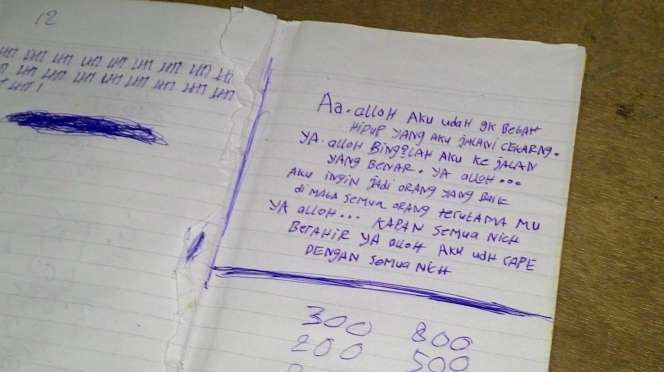 12
Aa. alloH AKU udaH gK BetaH
HiDUP YANG AKU jALANI CEKARNG.
YA. alloH BingBLAH AKU KE jALAN
YANG BENAR. YA alloH...
AKU ingin jadi ORANG YANG BAiK
di MATA SEMUA ORANG teRUtAMA MU
YA alloH... KAPAN SEMUA NiCH
BERAHiR YA alloH AKU udH CAPE
DENGAN SEMUA NiCH
300 800
200 500